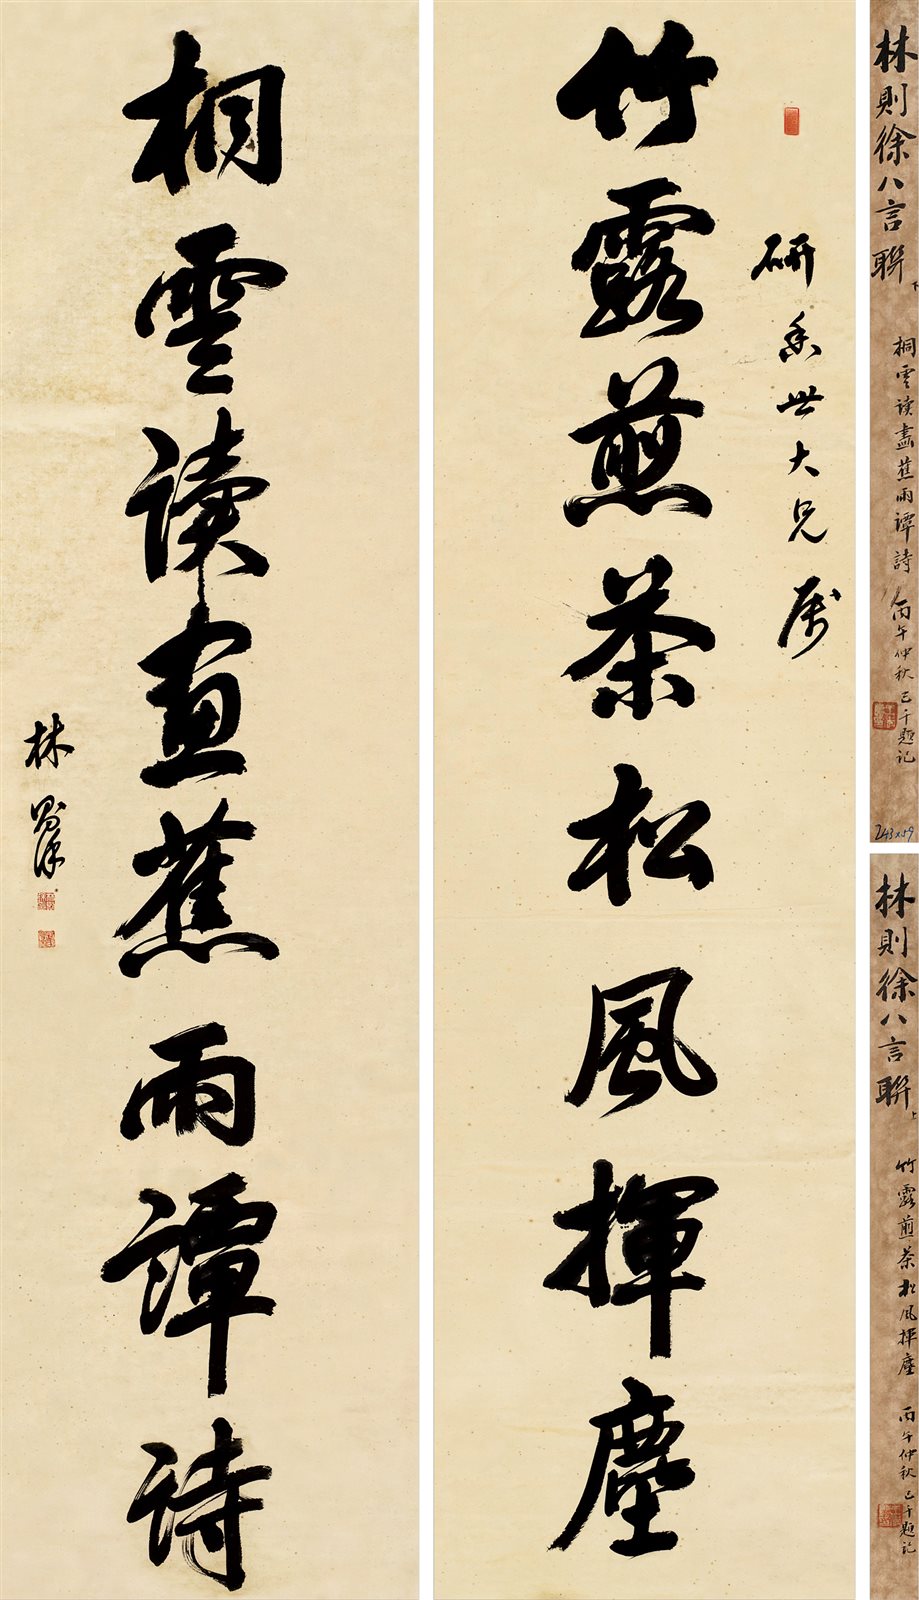 研香世大兄属
竹露煎茶松風揮塵
桐雲讀畫蕉雨譚詩
林則徐
林則徐八言聯 下
桐雲读畫蕉雨譚詩 丙午仲秋 己千题记
243x59
林則徐八言聯 上
竹露煎茶松风揮塵 丙午仲秋 己千题记